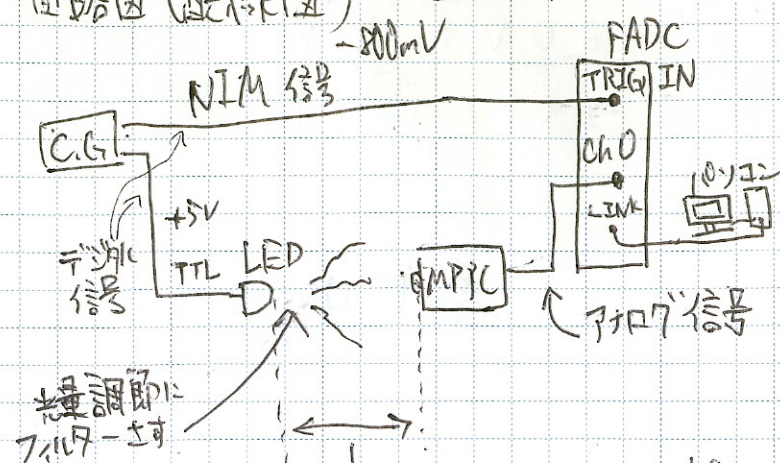 -800mV
FADC
NIM 信号
TRIG IN
C.G
ch0
パソコン
LINK
+5V
TTL
LED
デジタル
信号
MPPC
アナログ信号
光量調節に
フィルターさす